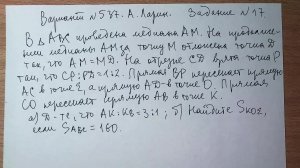 Вариант №537. А. Ларин. Задание №17.
В △ABC проведена медиана AM. На продолже-
нии медианы AM за точку M отложена точка D
так, что AM=MD. На отрезке CD взята точка P
так, что CP:PD=1:2. Прямая BP пересекает прямую
AC в точке E, а прямую AD в точке O. Прямая
CO пересекает прямую AB в точке K.
а) Д-те, что AK:KB=3:1; б) Найдите S_KOE,
если S_ABC = 160.